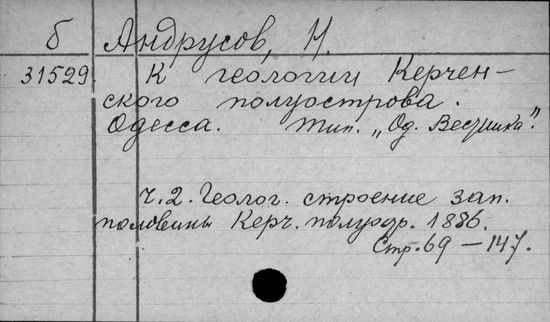 б Андрусов, Н.
31529 К геологии Керчен-
ского полуострова.
Одесса. Тип. „Од. Вестника".
ч. 2. Геолог. строение зап.
половины Керч. полуостр. 1886.
Стр. 69 – 147.